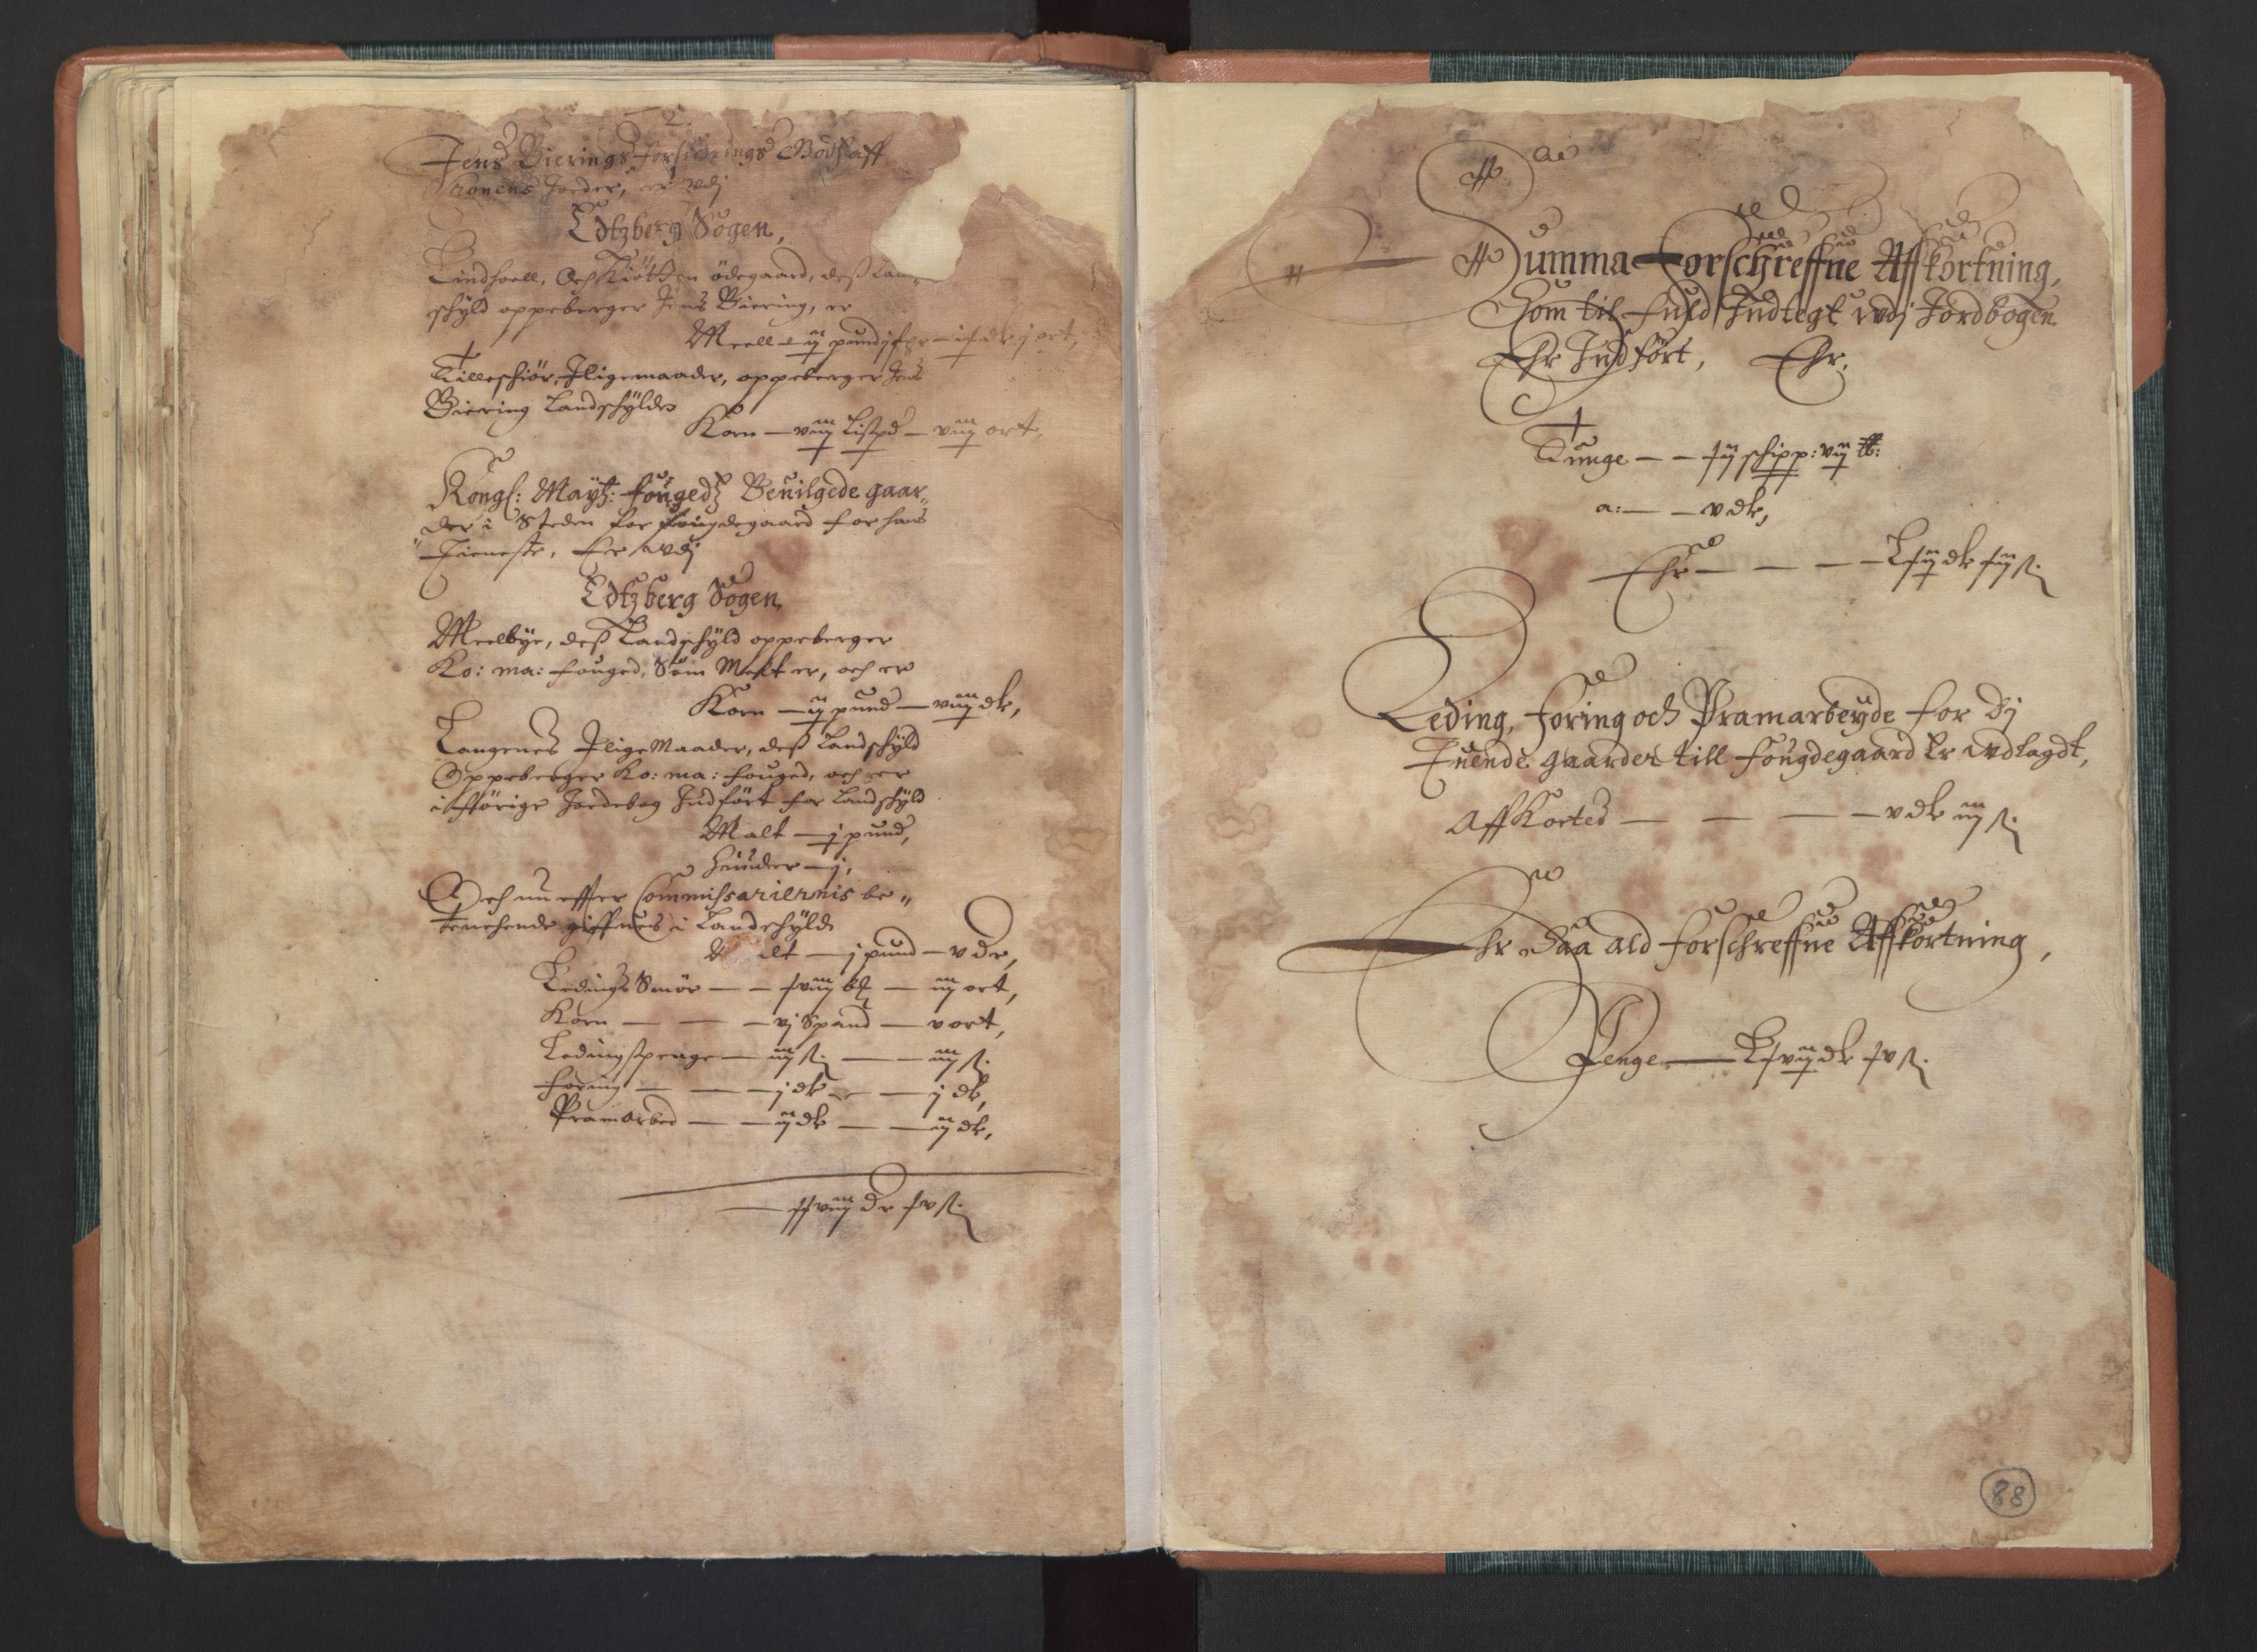 2.
Jens Bierings Forsickrings Godß aff
Kronens Jorder, er vdj
Edtzberg Sogen,
Lindhoell, Och Kiötten ödegaard, deß Lan
schyld oppeberger Jens Biering, er
Meell - ij pund j
Tilleschiör, Iligemaader, oppeberger Jens
Biering Landschyldᷠ
Korn — viij Lispd — viij ort,
Kongl: Maytz: fougedz Beuilgede gaar„
„der i Steden for fougdegaard for hans
Tieneste, Er wdj
Edtzberg Sogen,
Meelbye, deß Landschyld oppeberger
Ko: ma: fouged, Som Melt er, och er
Korn — ij pund — viij dlr,
Langenes Iligemaader, deß Landschyld
Oppeberger Ko: ma: fouged, och er
i förige Jordebog Indfört for Landschyld
Malt — j pund,
Huuder — j,
Och nu effter Commissariernis be„
tenchende giffues i Landschyld
alt — j pund — v dr,
Ledings Smör — — — iij ort,
Korn — — — vj Spand — v ort,
Ledingspenge — iij ß. — — iij ß.
Foring — — — j dlr — — j dlr,
Pramarbed — — ij dlr — — ij dlr,
— xxviij dr xv ß.
Summa Forschreffne Affkortning,
Som til fuld Indtegt wdj Jordbogen
Ehr Indfört, Ehr,
Tunge — — xij schipp: vij tt:
a: — — v dlr,
Ehr — — — — Lxij dlr xij ß.
Leding, foring och Pramarbeyde for dj
Tuende gaarder till fougdegaard Er wdlagdt,
Affkorted — — — — v dlr iij ß.
Ehr Saa ald forschreffne Affkortning,
Penge — Lxvij dlr xv ß.
88